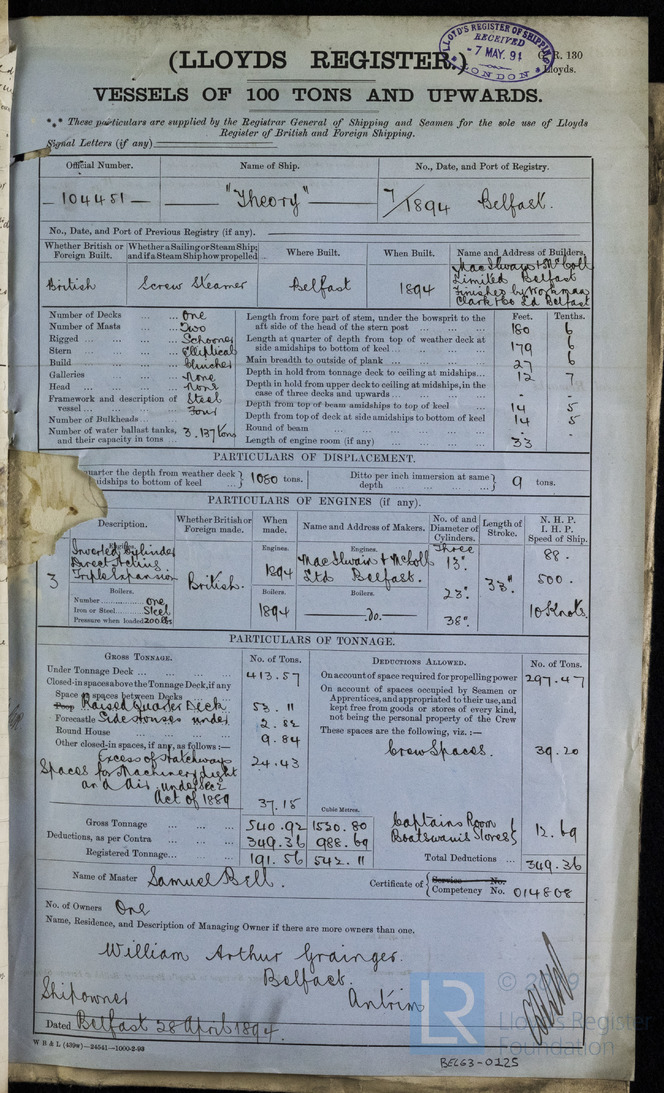 (LLOYDS REGISTER.)
LLOYD'S REGISTER OF SHIPPING
RECEIVED
- 7 MAY. 94
LONDON
R. 130
Lloyds.
VESSELS OF 100 TONS AND UPWARDS.
*** These particulars are supplied by the Registrar General of Shipping and Seamen for the sole use of Lloyds
Register of British and Foreign Shipping.
Signal Letters (if any)
Official Number. Name of Ship. No., Date, and Port of Registry.
104451 "Theory" 7/1894 Belfast.
No., Date, and Port of Previous Registry (if any).
Whether British or Foreign Built. Whether a Sailing or Steam Ship; and if a Steam Ship how propelled Where Built. When Built. Name and Address of Builders.
British Screw Steamer Belfast 1894 MacIlwaine & McColl Limited Belfast Finished by Workman Clark & Co Ld Belfast
Number of Decks ... ... One
Number of Masts ... Two
Rigged ... ... Schooner
Stern ... Elliptical
Build ... Clincher
Galleries ... None
Head ... None
Framework and description of vessel ... Steel
Number of Bulkheads ... Four
Number of water ballast tanks, and their capacity in tons ... 3. 137 tons
Feet. Tenths.
Length from fore part of stem, under the bowsprit to the aft side of the head of the stern post ... 180 6
Length at quarter of depth from top of weather deck at side amidships to bottom of keel ... 179 6
Main breadth to outside of plank ... 27 6
Depth in hold from tonnage deck to ceiling at midships ... 12 7
Depth in hold from upper deck to ceiling at midships, in the case of three decks and upwards ... - -
Depth from top of beam amidships to top of keel 14 5
Depth from top of deck at side amidships to bottom of keel 14 5
Round of beam ... - -
Length of engine room (if any) ... 33 -
PARTICULARS OF DISPLACEMENT.
quarter the depth from weather deck midships to bottom of keel ... 1080 tons.
Ditto per inch immersion at same depth ... 9 tons.
PARTICULARS OF ENGINES (if any).
Description. Whether British or Foreign made. When made. Name and Address of Makers. No. of and Diameter of Cylinders. Length of Stroke. N. H. P. I. H. P. Speed of Ship.
3
Engines. Inverted Cylinder Direct Acting Triple Expansion
British.
Engines. 1894
Engines. MacIlwain & McColl Ltd Belfast.
Three 13". 23". 38".
33"
88.
500.
10 Knots.
Boilers.
Number ... One
Iron or Steel ... Steel
Pressure when loaded 200 lbs
Boilers. 1894
Boilers. Do.
PARTICULARS OF TONNAGE.
GROSS TONNAGE. No. of Tons.
Under Tonnage Deck ... 413.57
Closed-in spaces above the Tonnage Deck, if any
Space or spaces between Decks
Poop Raised Quarter Deck 53.11
Forecastle Side Houses under 2.82
Round House ... 9.84
Other closed-in spaces, if any, as follows:—
Excess of Hatchways 24.43
Spaces for Machinery Light and Air, under Sec 2 Act of 1889 37.15
Cubic Metres.
Gross Tonnage ... 540.92 1530.80
Deductions, as per Contra ... 349.36 988.69
Registered Tonnage ... 191.56 542.11
DEDUCTIONS ALLOWED. No. of Tons.
On account of space required for propelling power 297.47
On account of spaces occupied by Seamen or Apprentices, and appropriated to their use, and kept free from goods or stores of every kind, not being the personal property of the Crew
These spaces are the following, viz.:—
Crew Spaces. 39.20
Captains Room
Boatswains Stores 12.69
Total Deductions ... 349.36
Name of Master Samuel Bell.
Certificate of Service No.
Competency No. 014808
No. of Owners One
Name, Residence, and Description of Managing Owner if there are more owners than one.
William Arthur Grainger.
Belfast.
Antrim
Shipowner
Dated Belfast 28 April 1894.
W B & L (439w)—24541—1000-2-93
LR
© 2019
Lloyd's Register
Foundation
BEL63-0125